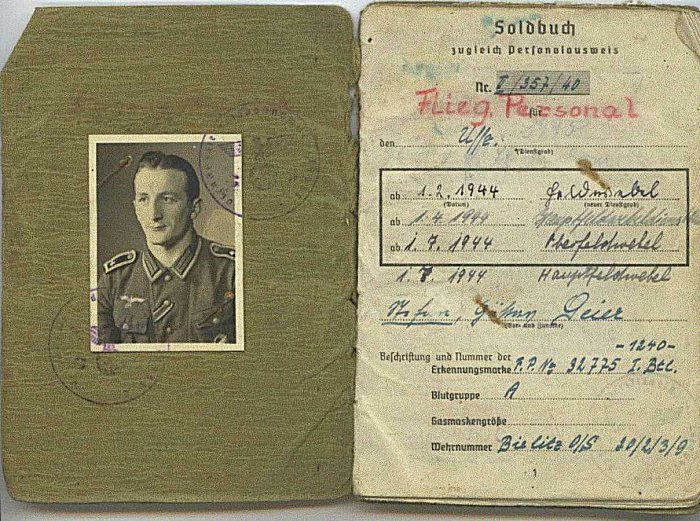 Soldbuch
zugleich Personalausweis
Nr. I/357/40
Flieg. Personal
für
den Uffz.
(Dienstgrad)
ab 1.2.1944 Feldwebel
(Datum) (neuer Dienstgrad)
ab 1.4.1944
ab 1.7.1944 Oberfeldwebel
1.7.1944 Hauptfeldwebel
Stefan, Geier
(Vor- und Zuname)
-1240-
Beschriftung und Nummer der
Erkennungsmarke F.P.Nr 32775 I. Btl.
Blutgruppe A
Gasmaskengröße
Wehrnummer Bielitz O/S 20/2/3/9
1